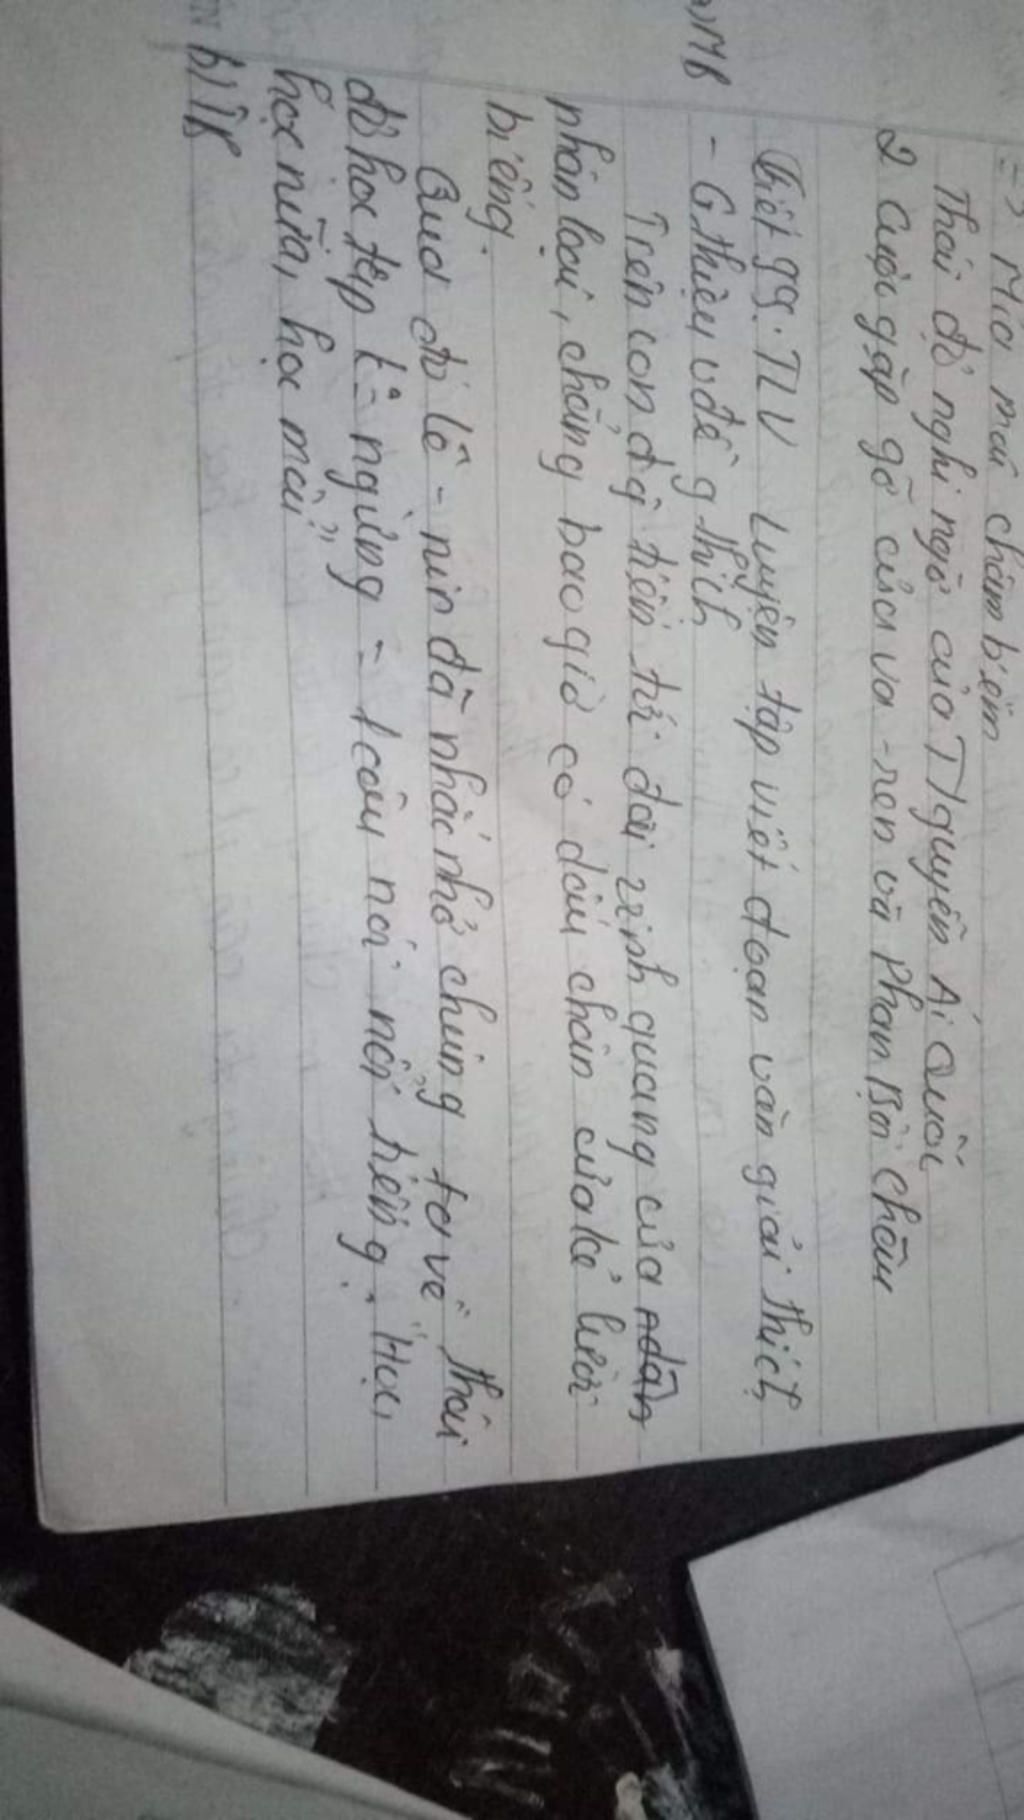 => Mỉa mai châm biếm
Thái độ nghi ngờ của Nguyễn Ái Quốc
2 cuộc gặp gỡ của Va-ren và Phan Bội Châu
Tiết 99: TLV Luyện tập viết đoạn văn giải thích
a) MB - G.thiệu vđề g.thích
Trên con đg tiến tới đài vinh quang của
nhân loại, chẳng bao giờ có dấu chân của kẻ lười
biếng.
Qua đó Lê-nin đã nhắc nhở chúng ta về thái
độ học tập k ngừng = 1 câu nói nổi tiếng: "Học,
học nữa, học mãi"
b) TB